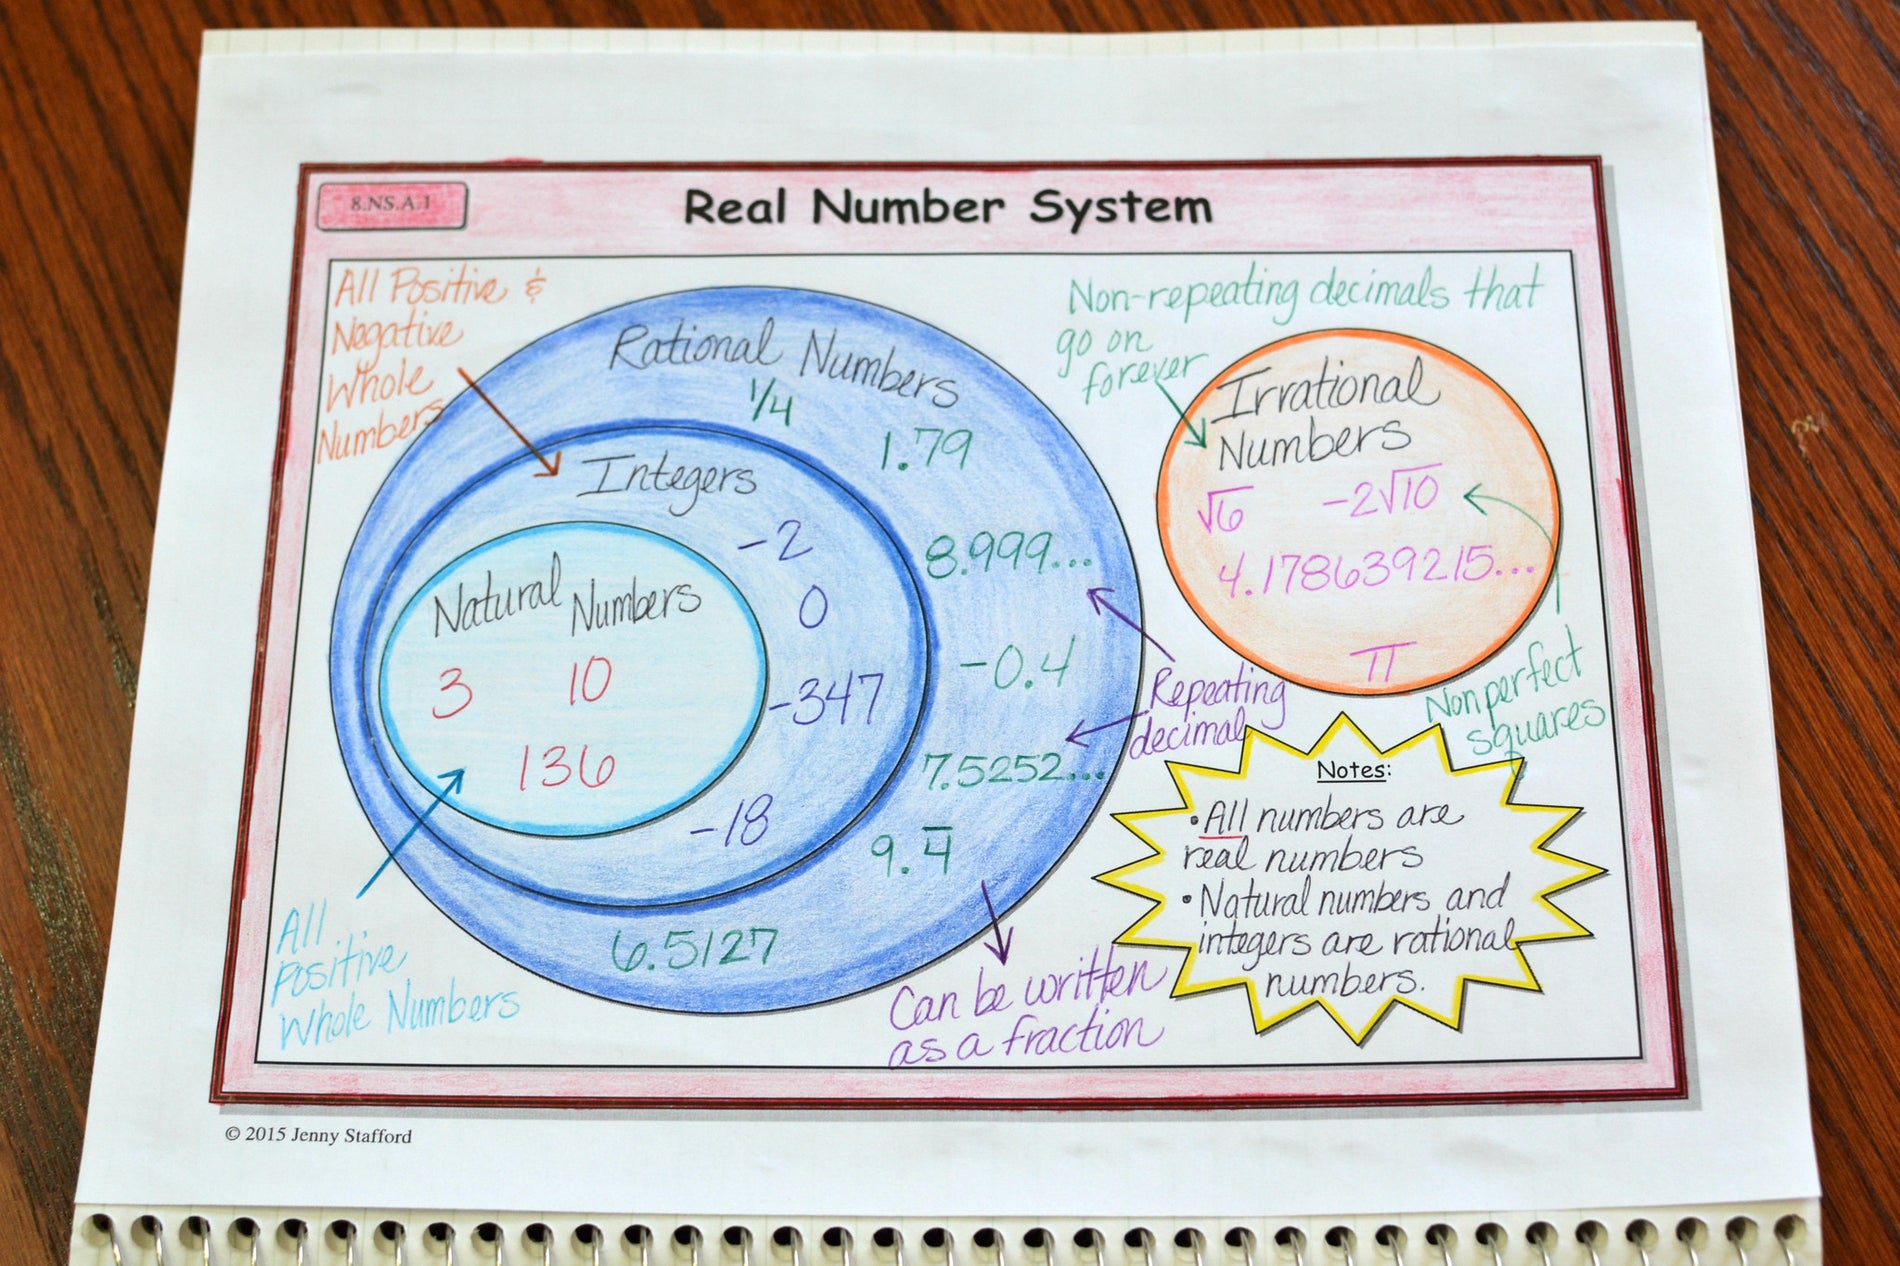 8.NS.A.1
Real Number System
All Positive &
Negative
Whole
Numbers
Rational Numbers
1/4
1.79
8.999...
-0.4
7.5252...
9.4̅
6.5127
Integers
-2
0
-347
-18
Natural Numbers
3 10
136
All
Positive
Whole Numbers
Repeating
decimal
Can be written
as a fraction
Non-repeating decimals that
go on
forever
Irrational
Numbers
√6 -2√10
4.178639215...
π
Nonperfect
squares
Notes:
• All numbers are
real numbers
• Natural numbers and
integers are rational
numbers.
© 2015 Jenny Stafford